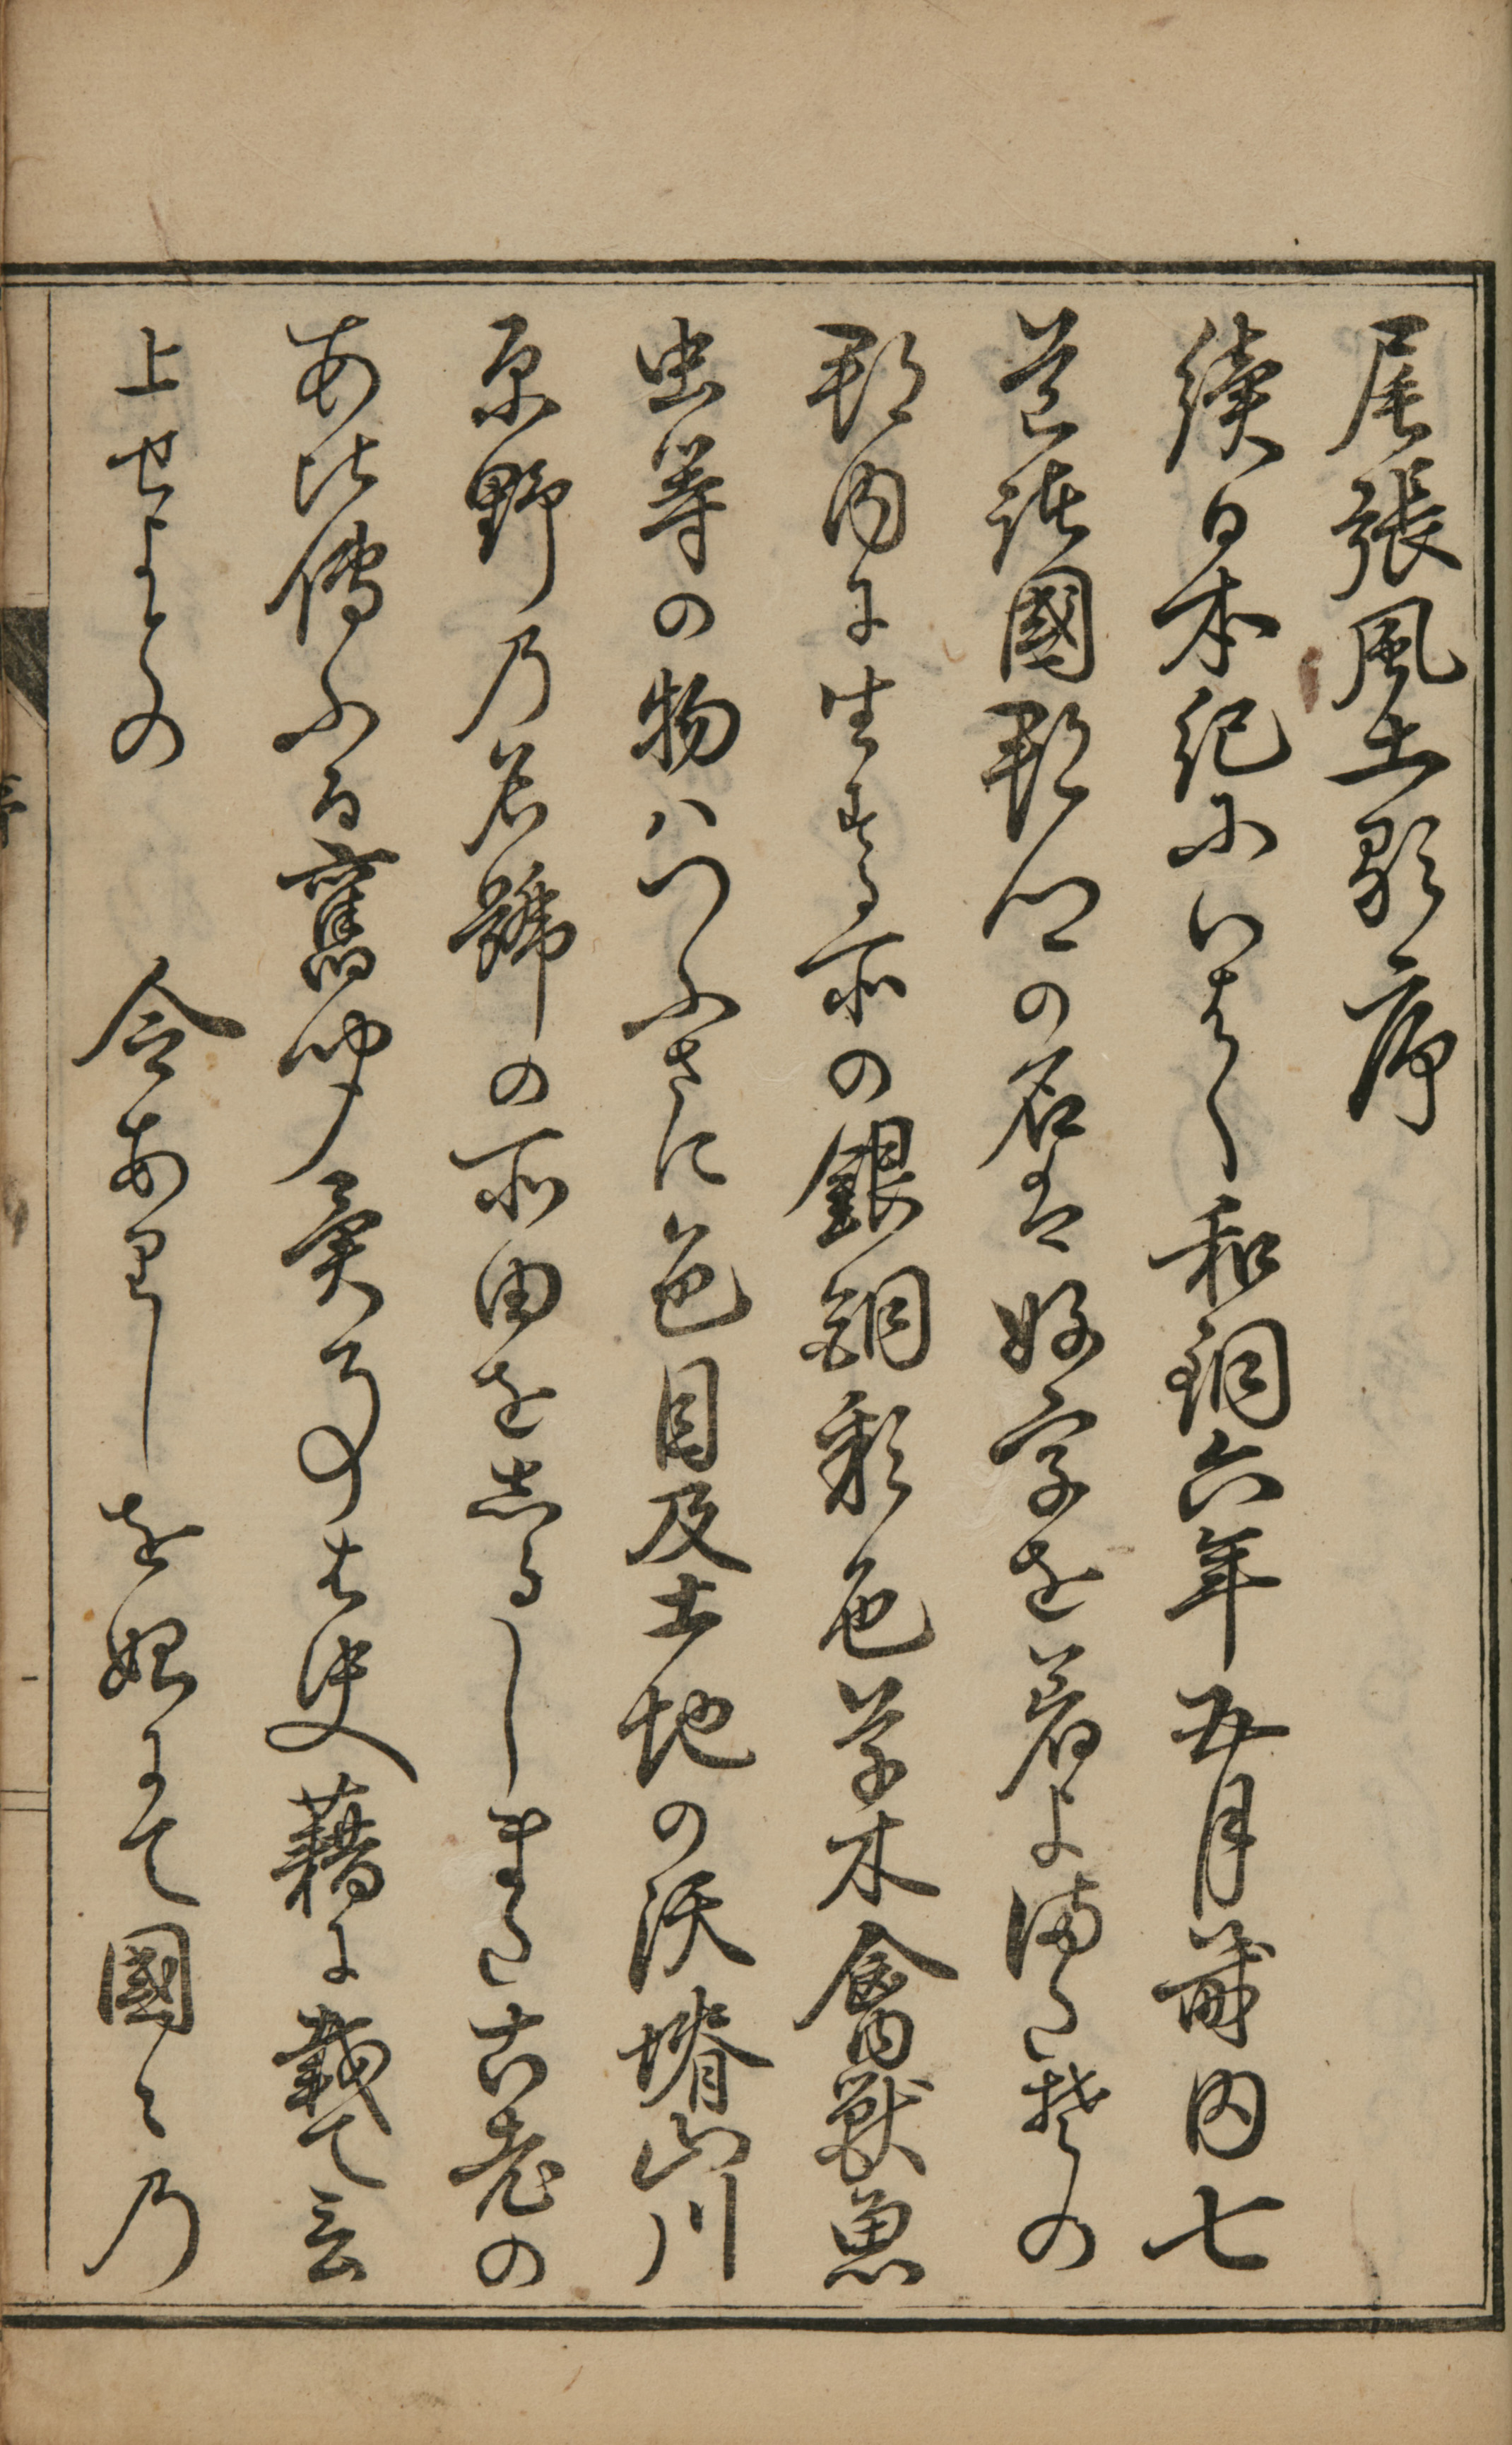 尾張風土歌序
續日本紀にいはく和銅六年五月畿内七
道諸國郡郷の名は好字を着よまたその
郡内に生する所の銀銅彩色草木禽獸魚
虫等の物ハつふさに色目及土地の沃塉山川
原野乃名號の所由をしるしまた古老の
あひ傳ふる舊聞異事は史藉に載て言
上せよとの 令ありしを始にて國〻乃